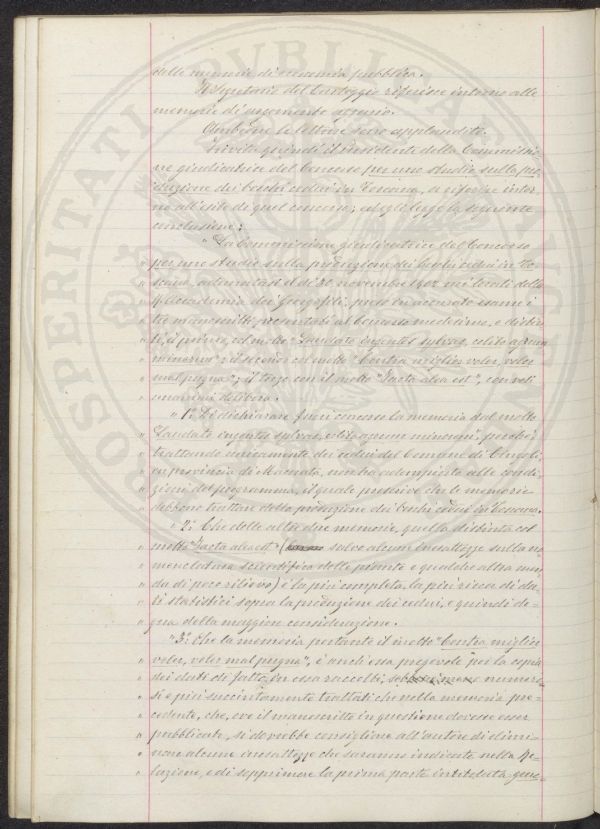 delle memorie di economia pubblica.
Il Segretario del Carteggio riferisce intorno alle
memorie di argomento agrario.
Ambedue le letture sono applaudite.
Invita quindi il Presidente della Commissio-
ne giudicatrice del Concorso per uno studio sulla pro-
duzione dei boschi cedui in Toscana, a riferire intor-
no all'esito di quel concorso; ed egli legge la seguente
conclusione:
" La Commissione giudicatrice del Concorso
per uno studio sulla produzione dei boschi cedui in To-
scana, adunatasi il dì 20 novembre 1902 nei locali della
" R. Accademia dei Georgofili, preso in accurato esame i
" tre manoscritti presentati al Concorso medesimo, e distin-
ti, il primo, col motto "Laudato ingentes sylvas, colito agrum
minorem"; il secondo col motto "Contra miglior voler, voler
" mal pugna"; il terzo con il motto "Jacta alea est", con voti
unanimi delibera:
" 1.° Di dichiarare fuori concorso la memoria dal motto
" Laudato ingentes sylvas, colito agrum minorem", perchè
" trattando unicamente dei cedui del Comune di Cingoli,
" in provincia di Macerata, non ha adempiuto alle condi-
" zioni del programma, il quale prescrive che le memorie
" debbono trattare della produzione dei boschi cedui in Toscana.
" 2.° Che delle altre due memorie, quella distinta col
" motto "Jacta alea est" ( salvo alcune inesattezze sulla no-
" menclatura scientifica delle piante e qualche altra men-
" da di poco rilievo) è la più completa, la più ricca di da-
" ti statistici sopra la produzione dei cedui, e quindi de-
" gna della maggiore considerazione.
" 3.° Che la memoria portante il motto "Contra miglior
" voler, voler mal pugna", è anch'essa pregevole per la copia
" dei dati di fatto in essa raccolti, numero-
" si e più succintamente trattati che nella memoria pre-
" cedente, che, ove il manoscritto in questione dovesse esser
" pubblicato, si dovrebbe consigliare all'autore di elimi-
" nare alcune inesattezze che saranno indicate nella Re-
" lazione, e di sopprimere la prima parte intitolata gene-
PROSPERITATI PVBLICAE AVGENDAE